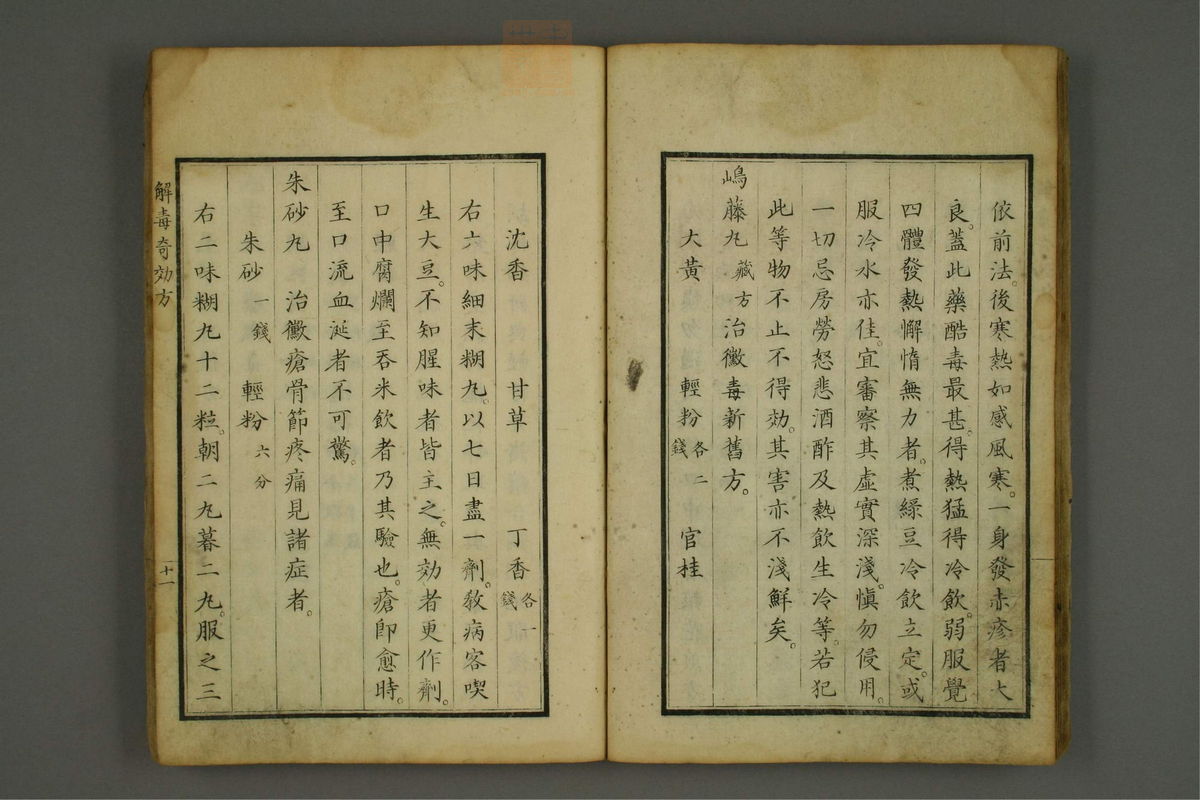 依前法。後寒熱如感風寒。一身發赤疹者大
良。蓋此藥酷毒最甚。得熱猛得冷飲。弱服覺
四體發熱懈惰無力者。煮綠豆冷飲立定。或
服冷水亦佳。宜審察其虛實深淺。愼勿侵用。
一切忌房勞怒悲酒酢及熱飲生冷等。若犯
此等物不止不得効。其害亦不淺鮮矣。
嶋藤丸藏方治黴毒新舊方。
大黃 輕粉各二錢 官桂
沈香 甘草 丁香各一錢
右六味細末糊丸。以七日盡一劑。教病客喫
生大豆。不知腥味者皆主之。無効者更作劑。
口中腐爛至吞米飲者乃其驗也。瘡卽愈時。
至口流血涎者不可驚。
朱砂丸 治黴瘡骨節疼痛見諸症者。
朱砂一錢 輕粉六分
右二味糊丸十二粒。朝二丸暮二丸。服之三
解毒奇効方
十一